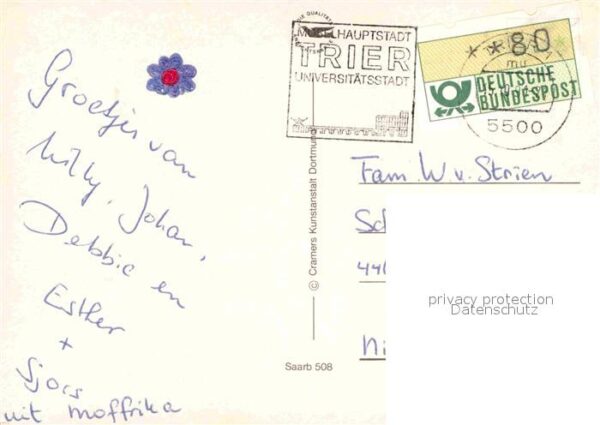 Groetjes van
Willy, Johan,
Debbie en
Esther
+
Sjors
uit moffrika
MOSELHAUPTSTADT
TRIER
UNIVERSITÄTSSTADT
**80
DEUTSCHE
BUNDESPOST
5500
© Cramers Kunstanstalt Dortmund
Fam. W. v. Strien
Sc
440
Ni
privacy protection
Datenschutz
Saarb 508